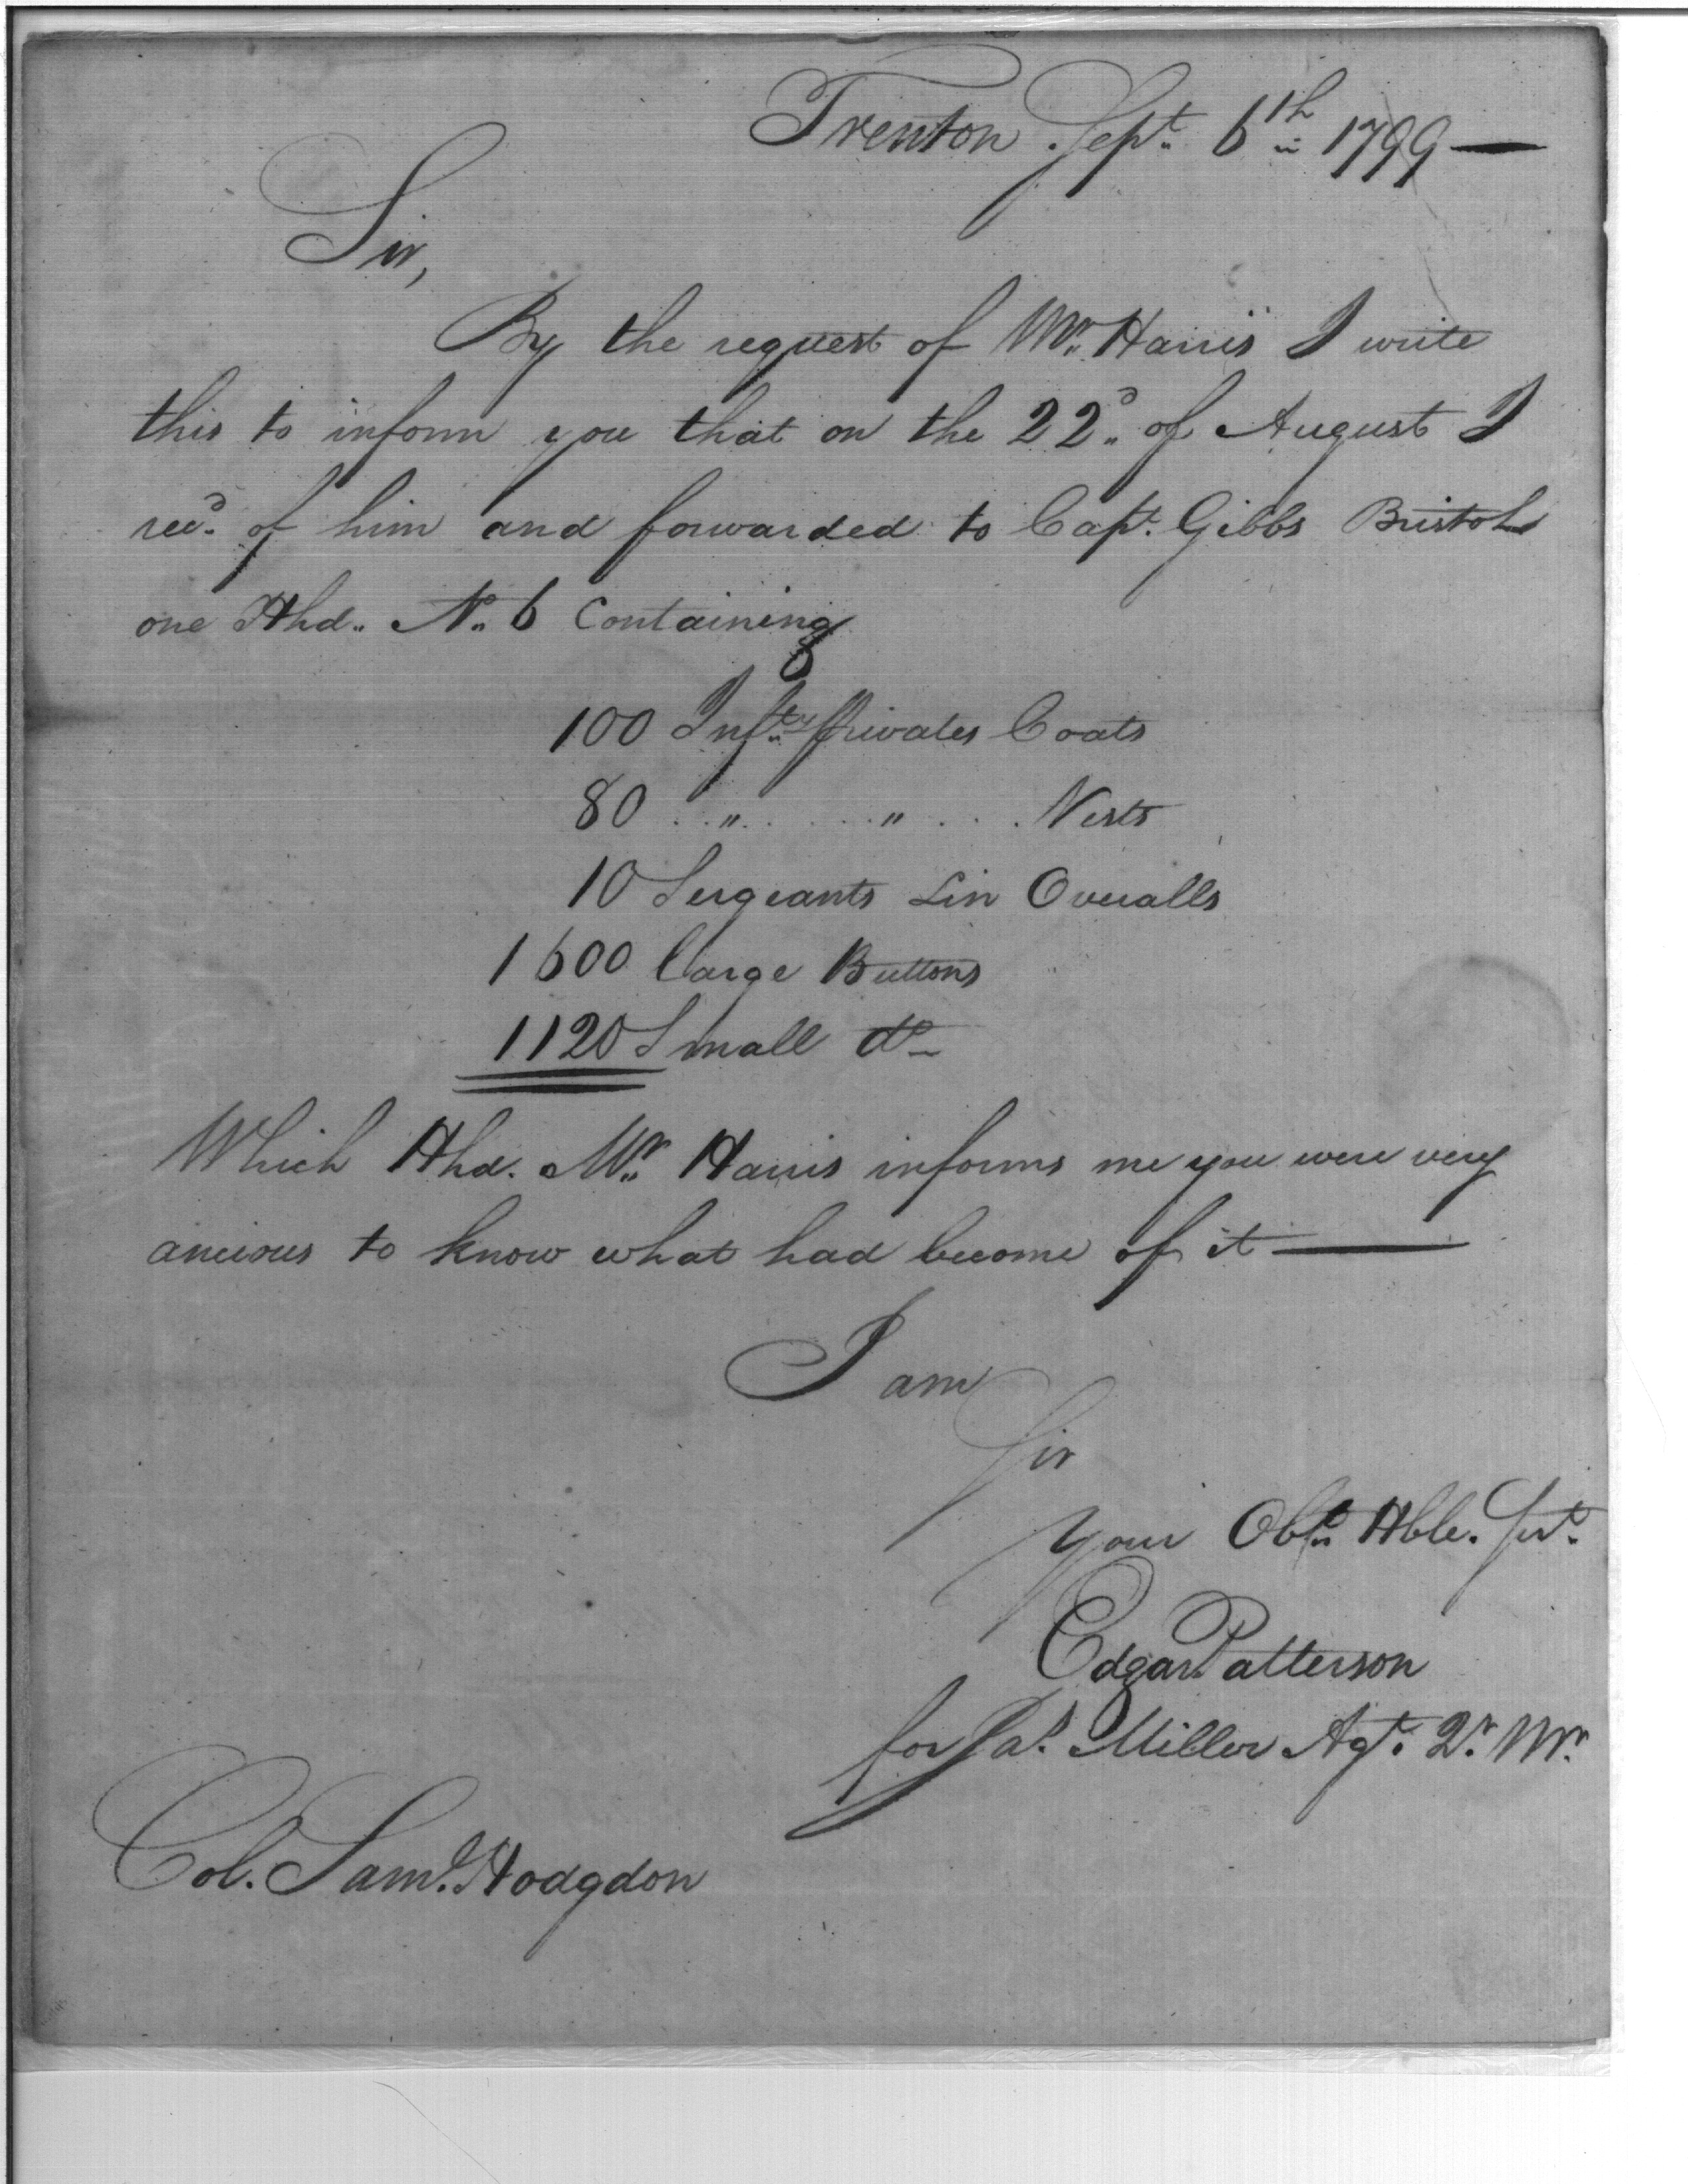 Trenton Sept. 6th 1799 —
Sir,
By the request of Mr. Harris I write
this to inform you that on the 22d. of August I
recd. of him and forwarded to Capt. Gibbs Bristol
one Hhd. No. 6 Containing
100 Infty. Privates Coats
80 .. " .. .. " .. Vests
10 Sergeants Lin Overalls
1600 Large Buttons
1120 Small do
Which Hhd. Mr. Harris informs me you were very
ancious to know what had become of it —
I am
Sir
Your Obt. Hble. Svt.
Edgar Patterson
for Jas. Miller Agt. Qr. Mr.
Col. Saml. Hodgdon